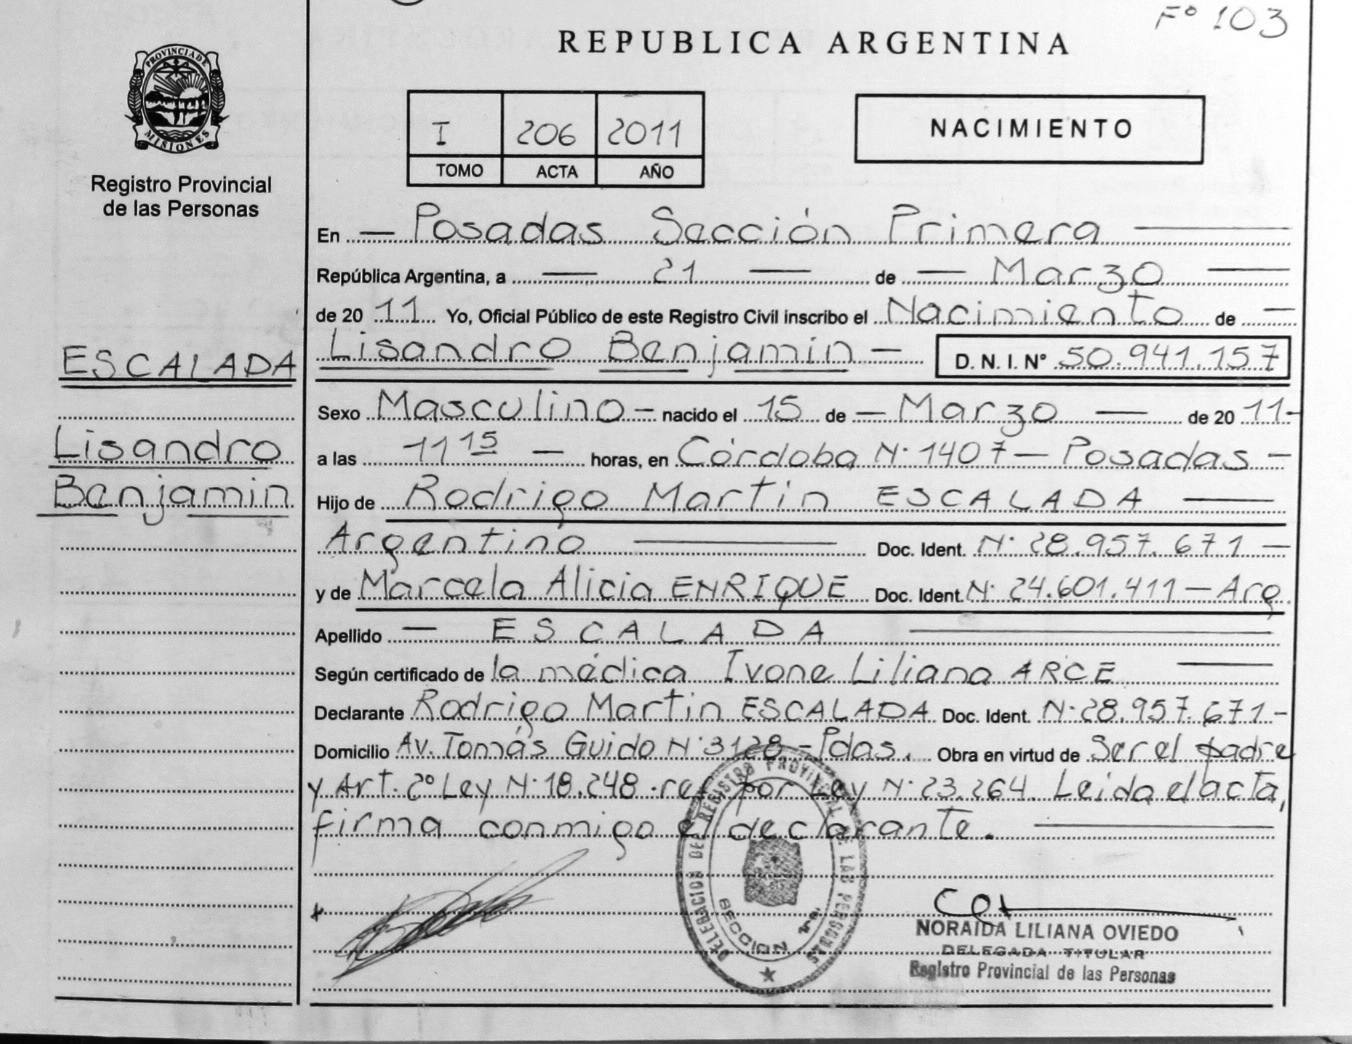 Fº 103
REPUBLICA ARGENTINA
PROVINCIA DE MISIONES
Registro Provincial
de las Personas
I 206 2011
TOMO ACTA AÑO
NACIMIENTO
En — Posadas Sección Primera —
República Argentina, a — 21 — de — Marzo —
de 2011 Yo, Oficial Público de este Registro Civil inscribo el Nacimiento de —
Lisandro Benjamin — D. N. I. Nº 50.941.157
ESCALADA
Lisandro
Benjamin
Sexo Masculino — nacido el 15 de — Marzo — de 2011 -
a las 11 15 — horas, en Córdoba Nº 1407 — Posadas —
Hijo de Rodrigo Martin ESCALADA —
Argentino — Doc. Ident. Nº 28.957.671 —
y de Marcela Alicia ENRIQUE Doc. Ident. Nº 24.601.411 — Arg.
Apellido — ESCALADA —
Según certificado de la médica Ivone Liliana ARCE —
Declarante Rodrigo Martin ESCALADA Doc. Ident. Nº 28.957.671 -
Domicilio Av. Tomás Guido Nº 3128 - Pdas. Obra en virtud de Ser el padre
y Art. 2º Ley Nº 18.248 por Ley Nº 23.264. Leida el acta,
firma conmigo el declarante. —
DELEGACION DEL REGISTRO PROVINCIAL DE LAS PERSONAS
SECCION 1ra.
NORAIDA LILIANA OVIEDO
DELEGADA TITULAR
Registro Provincial de las Personas